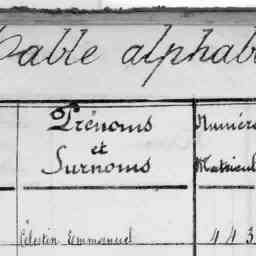 Table alphab
Prénoms
et
Surnoms
Numéro
Matricul
Célestin Emmanuel
443